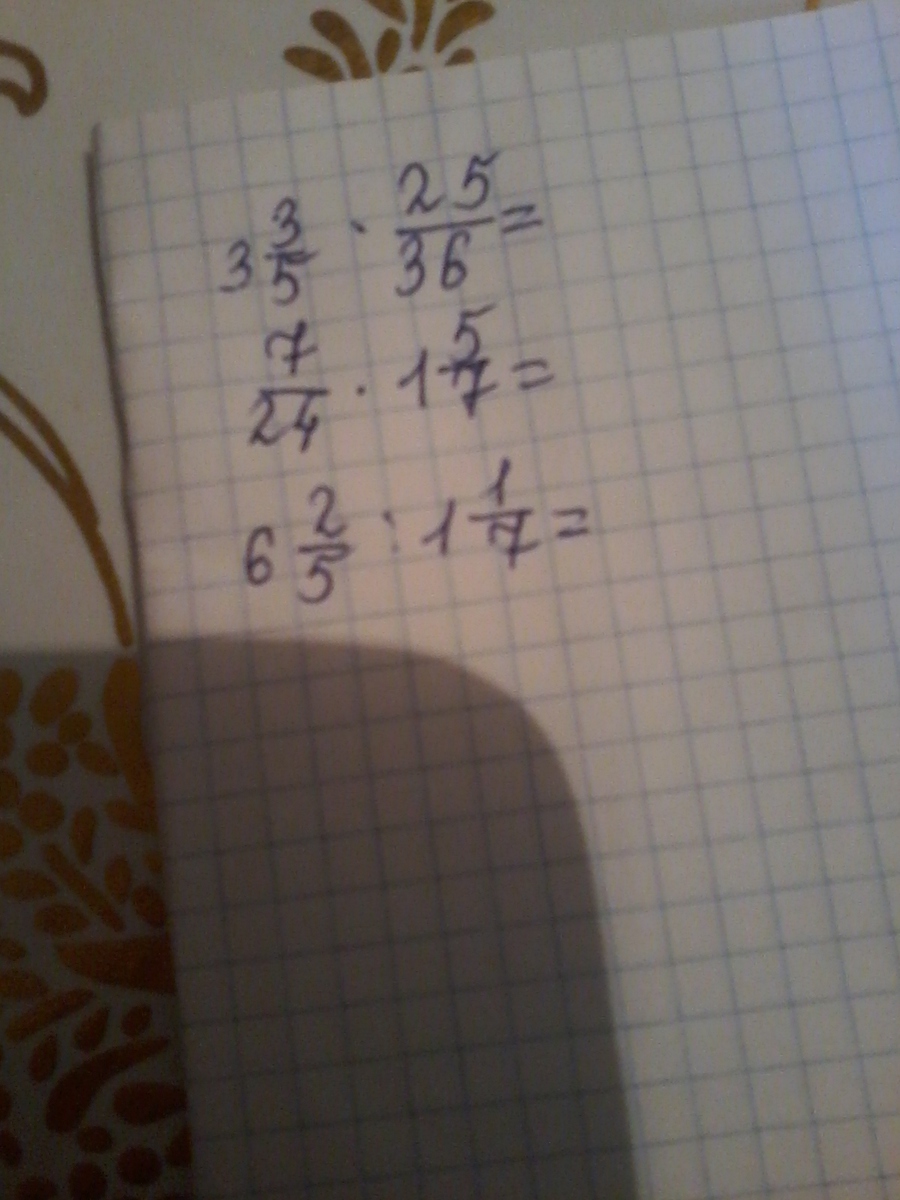 3 3/5 · 25/36 =
7/24 · 1 5/7 =
6 2/5 : 1 1/7 =